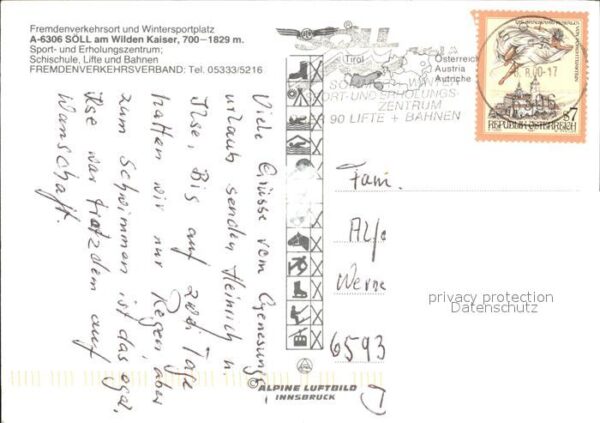 Fremdenverkehrsort und Wintersportplatz
A-6306 SÖLL am Wilden Kaiser, 700–1829 m.
Sport- und Erholungszentrum;
Schischule, Lifte und Bahnen
FREMDENVERKEHRSVERBAND: Tel. 05333/5216
SÖLL
Tirol
Österreich
Austria
Autriche
ZENTRUM
90 LIFTE + BAHNEN
6306
REPUBLIK ÖSTERREICH
S7
Viele Grüsse vom Genesungs-
urlaub senden Heinrich u
Ilse, Bis auf zwei Tage
hatten wir nur Regen, aber
zum Schwimmen ist das egal,
Ilse war trotzdem auf
Wanschaft.
Fam.
Werne
6593
privacy protection
Datenschutz
ALPINE LUFTBILD
INNSBRUCK